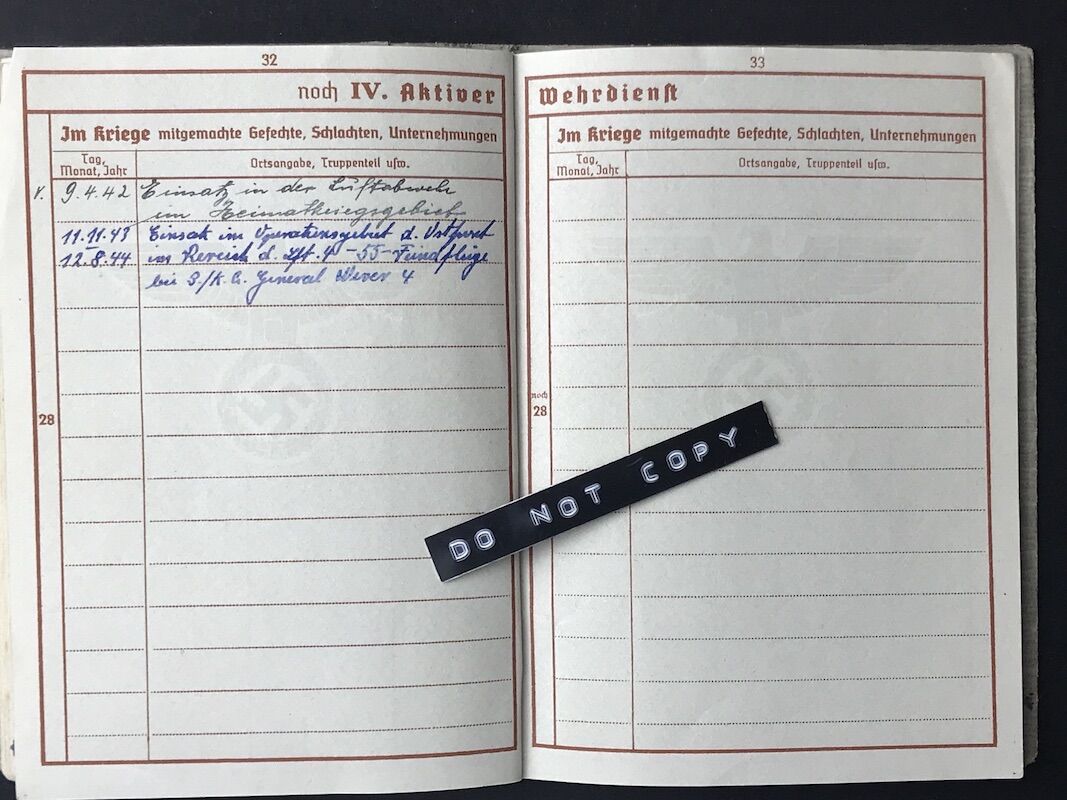 32
noch IV. Aktiver
Im Kriege mitgemachte Gefechte, Schlachten, Unternehmungen
Tag,
Monat, Jahr
Ortsangabe, Truppenteil usw.
V. 9.4.42 Einsatz in der Luftabwehr
im Heimatkriegsgebiet
11.11.43 Einsatz im Operationsgebiet d. Ostfront
12.8.44 im Bereich d. Lft. 4 - 55 - Feindflüge
bei K.G. General Wever 4
28
33
Wehrdienst
Im Kriege mitgemachte Gefechte, Schlachten, Unternehmungen
Tag,
Monat, Jahr
Ortsangabe, Truppenteil usw.
noch
28
DO NOT COPY